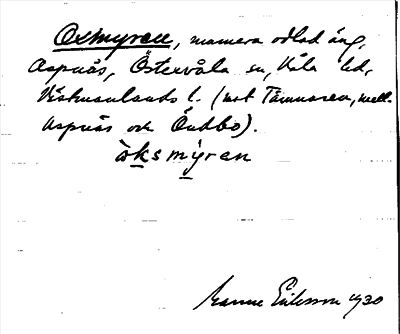 Oxmyren, numera odlad äng,
Aspnäs, Östervåla sn, Våla hd,
Västmanlands l. (mot Tämnaren, mell.
Aspnäs och Öndbo).
òksmyren
Eriksson 1930